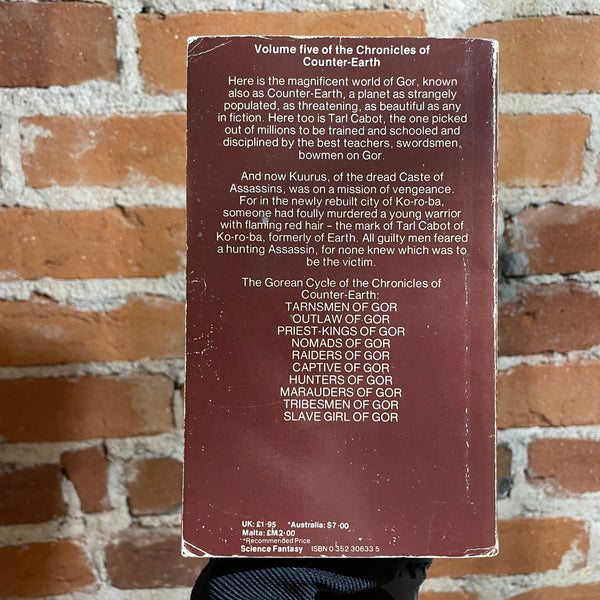 Volume five of the Chronicles of
Counter-Earth
Here is the magnificent world of Gor, known
also as Counter-Earth, a planet as strangely
populated, as threatening, as beautiful as any
in fiction. Here too is Tarl Cabot, the one picked
out of millions to be trained and schooled and
disciplined by the best teachers, swordsmen,
bowmen on Gor.
And now Kuurus, of the dread Caste of
Assassins, was on a mission of vengeance.
For in the newly rebuilt city of Ko-ro-ba,
someone had foully murdered a young warrior
with flaming red hair – the mark of Tarl Cabot of
Ko-ro-ba, formerly of Earth. All guilty men feared
a hunting Assassin, for none knew which was to
be the victim.
The Gorean Cycle of the Chronicles of
Counter-Earth:
TARNSMEN OF GOR
OUTLAW OF GOR
PRIEST-KINGS OF GOR
NOMADS OF GOR
RAIDERS OF GOR
CAPTIVE OF GOR
HUNTERS OF GOR
MARAUDERS OF GOR
TRIBESMEN OF GOR
SLAVE GIRL OF GOR
UK: £1·95 *Australia: $7·00
Malta: £M2·00
*Recommended Price
Science Fantasy ISBN 0 352 30633 5